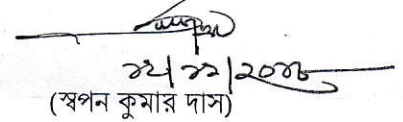 ১২|১২|২০১৮
(স্বপন কুমার দাস)